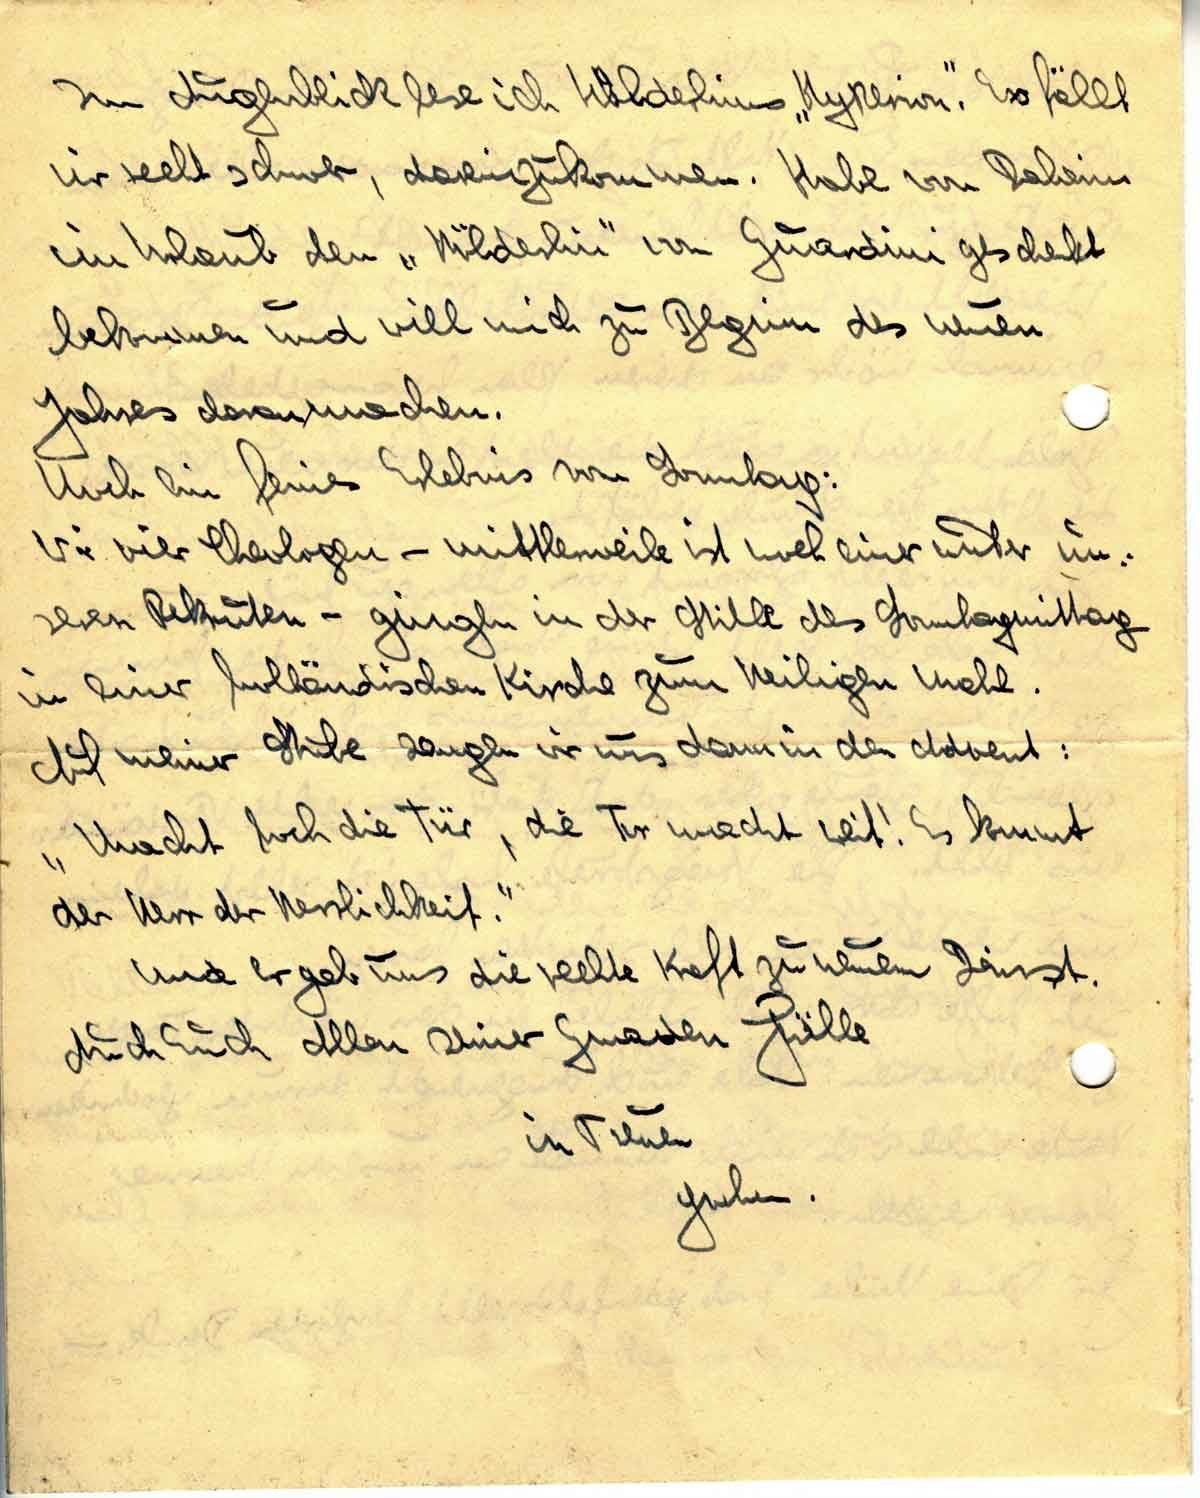 Im Augenblick lese ich Hölderlins „Hyperion". Es fällt
mir recht schwer, dareinzukommen. Habe von Daheim
im Urlaub den „Hölderlin" von Guardini geschenkt
bekommen und will mich zu Beginn des neuen
Jahres daranmachen.
Noch ein feines Erlebnis vom Sonntag:
Wir vier Theologen – mittlerweile ist noch einer unter un-
seren Rekruten – gingen in der Stille des Sonntagmittag
in einer holländischen Kirche zum Heiligen Mahl.
Auf meiner Stube sangen wir uns dann in den Advent:
„Macht hoch die Tür, die Tor macht weit! Es kommt
der Herr der Herrlichkeit."
Und Er geb uns die rechte Kraft zu neuem Dienst.
Auch Euch Allen seiner Gnaden Fülle
in Treuen